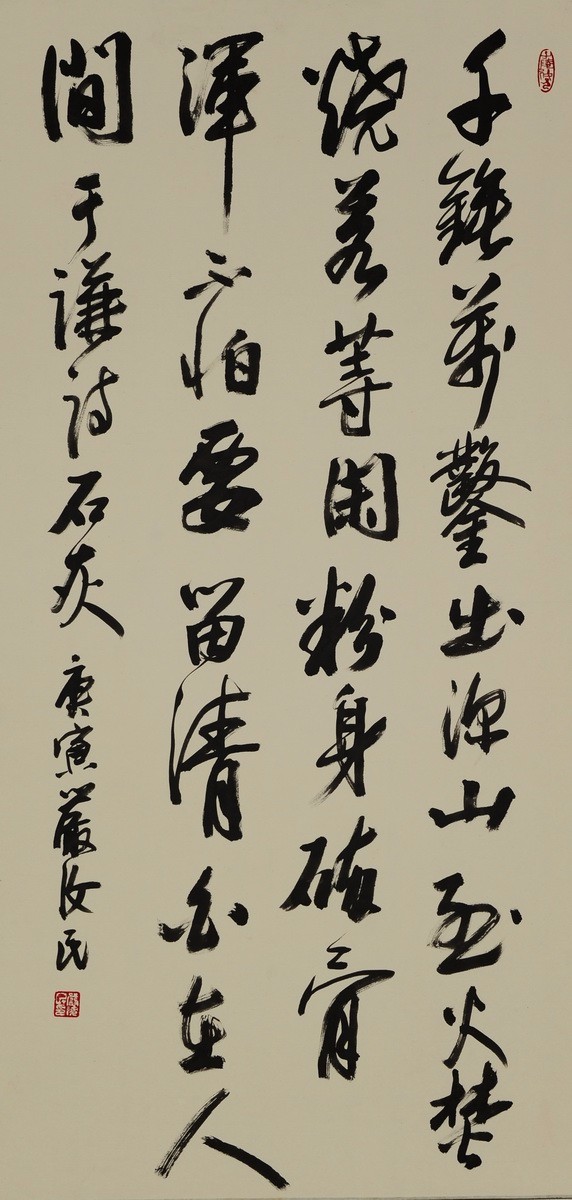 千錘萬鑿出深山烈火焚
燒若等閑粉身碎骨
渾不怕要留清白在人
間 于謙詩石灰 庚寅嚴汝民